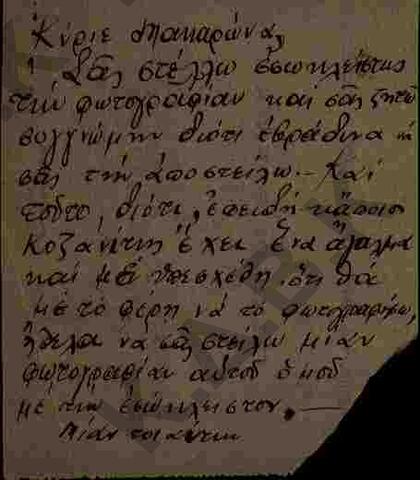 Κύριε Μπακαρώνα,
Σᾶς στέλλω ἐσωκλείστως
τὴν φωτογραφίαν καὶ σᾶς ζητῶ
συγγνώμην διότι ἐβράδυνα νὰ
σᾶς τὴν ἀποστείλω.- Καὶ
τοῦτο, διότι, ἐπειδὴ κάποιοι
Κοζανίτης ἔχει ἕνα ἄγαλμα
καὶ μοῦ ὑπεσχέθη, ὅτι θὰ
μὲ τὸ φέρῃ νὰ τὸ φωτογραφήσω,
ἤθελα νὰ σᾶς στείλω μίαν
φωτογραφίαν αὐτοῦ ὁμοῦ
μὲ τὴν ἐσώκλειστον.-
Μίαν τοιαύτην